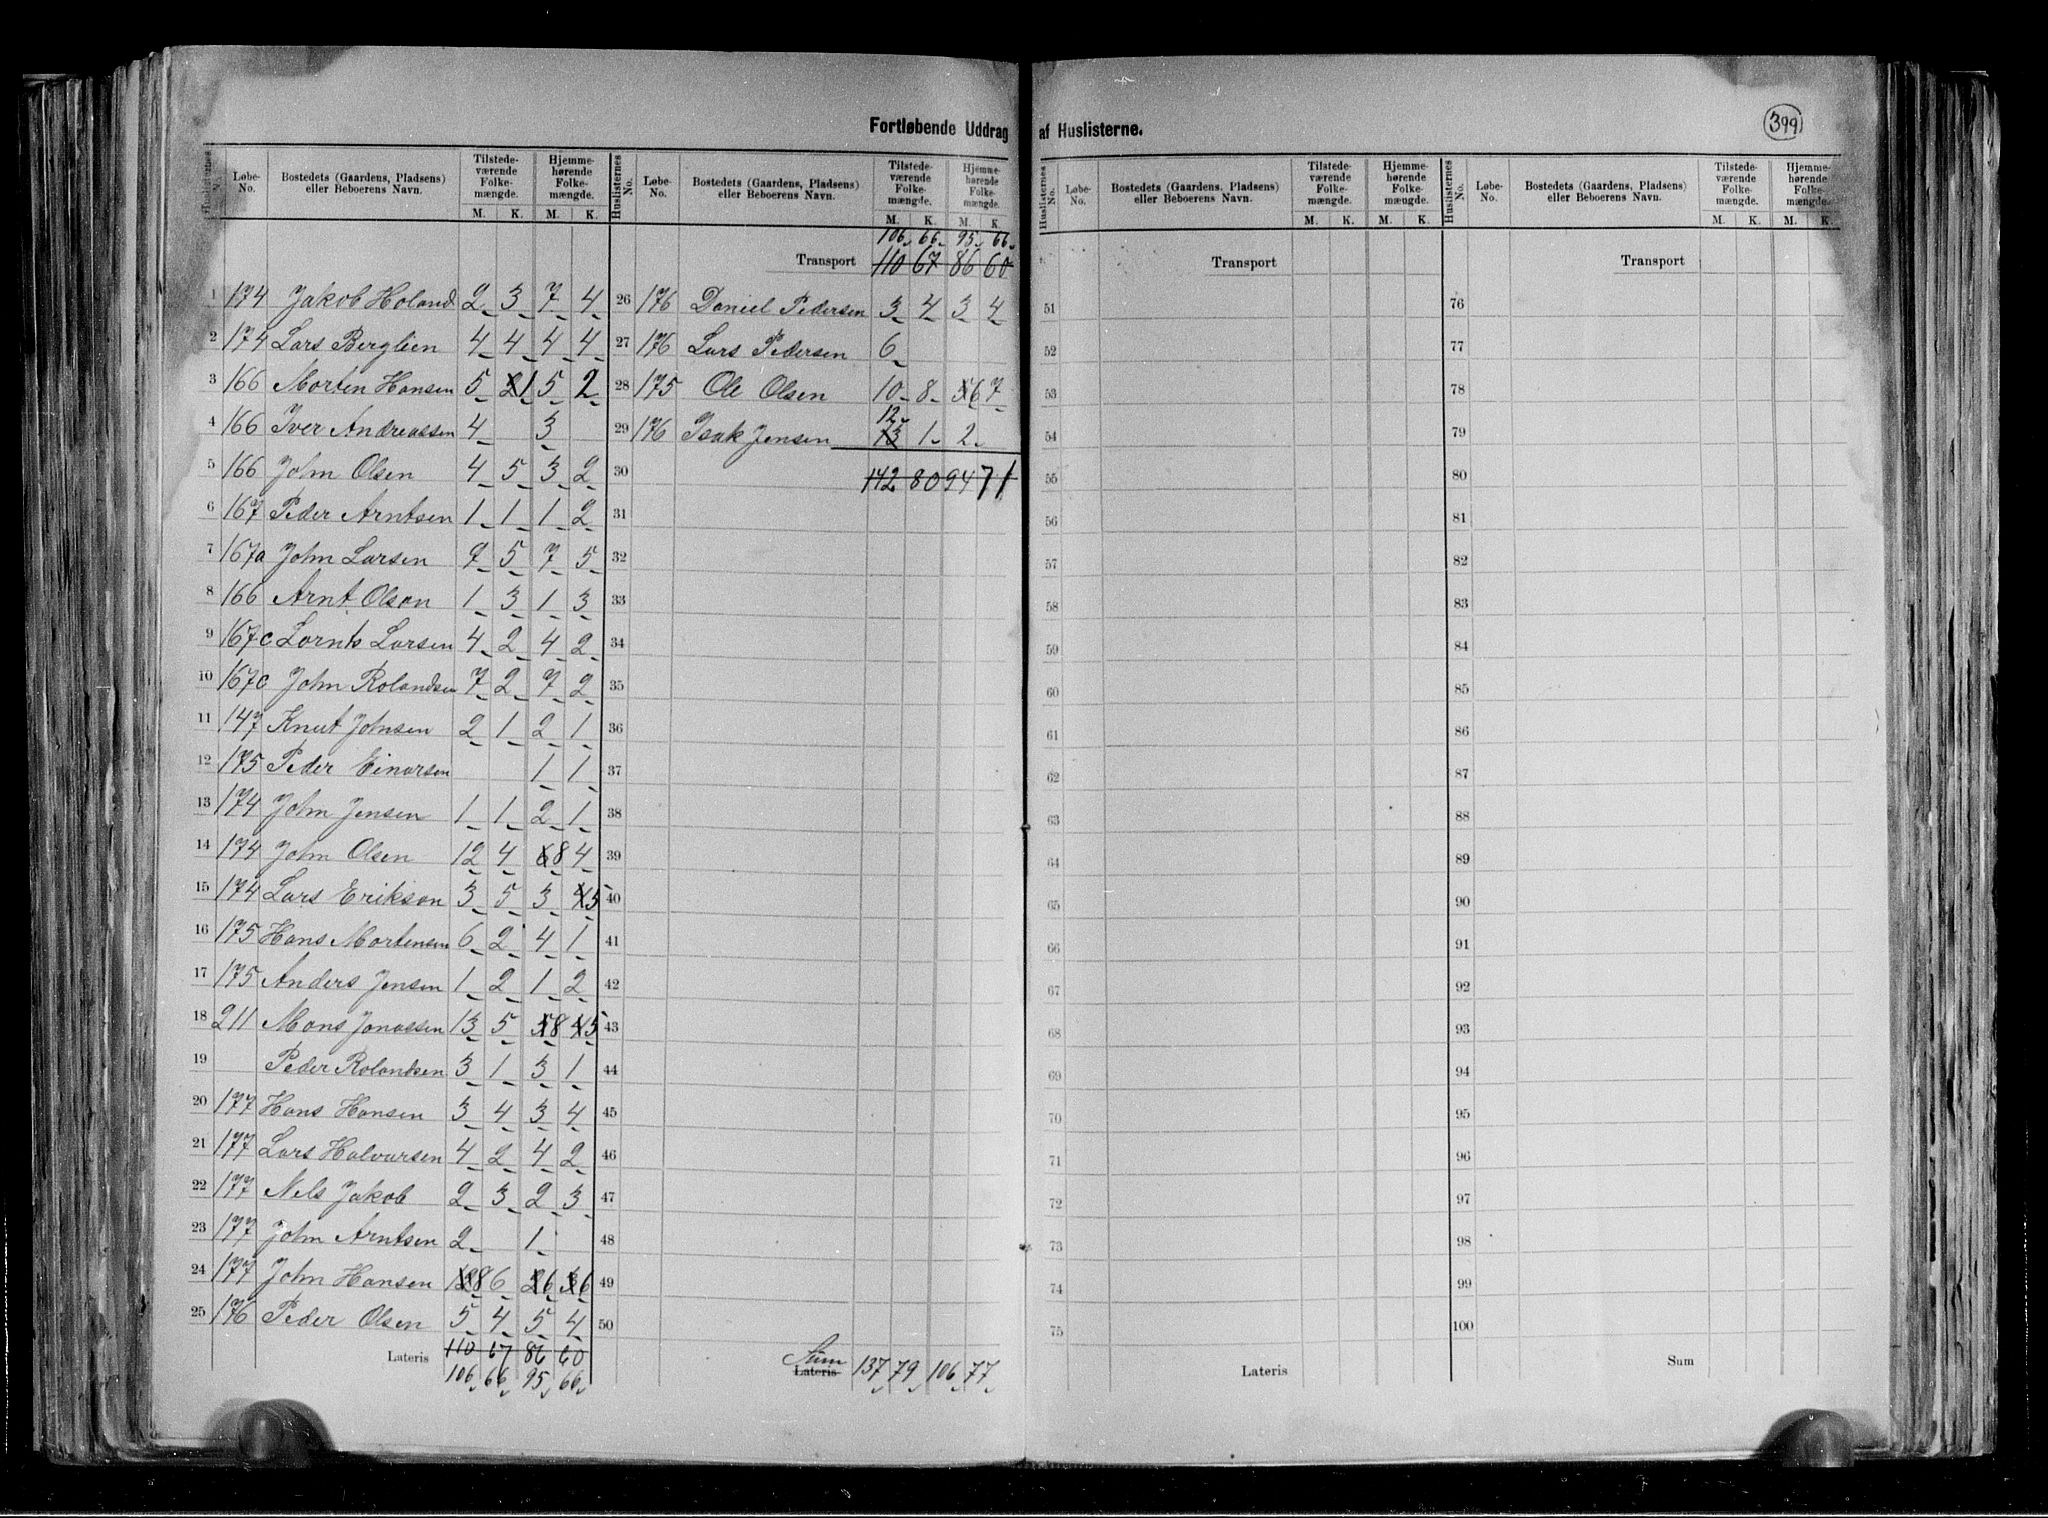 Fortløbende Uddrag af Huslisterne.
399
Huslisternes No. Løbe-No. Bostedets (Gaardens, Pladsens) eller Beboerens Navn. Tilstedeværende Folkemængde. M. K. Hjemmehørende Folkemængde. M. K.
1 174 Jakob Holand 2 3 7 4
2 174 Lars Berglien 4 4 4 4
3 166 Morten Hansen 5 1 5 2
4 166 Iver Andreassen 4 3
5 166 John Olsen 4 5 3 2
6 167 Peder Arntsen 1 1 1 2
7 167a John Larsen 9 5 7 5
8 166 Arnt Olson 1 3 1 3
9 167c Lornts Larsen 4 2 4 2
10 167c John Rolandsen 7 2 7 2
11 147 Knut Johnsen 2 1 2 1
12 175 Peder Einarsen 1 1
13 174 John Jensen 1 1 2 1
14 174 John Olsen 12 4 8 4
15 174 Lars Erikson 3 5 3 5
16 175 Hans Mortensen 6 2 4 1
17 175 Anders Jensen 1 2 1 2
18 211 Mons Jonassen 13 5 8 5
19 Peder Rolandsen 3 1 3 1
20 177 Hans Hansen 3 4 3 4
21 177 Lars Halvarsen 4 2 4 2
22 177 Nels Jakob 2 3 2 3
23 177 John Arntsen 2 1
24 177 John Hansen 8 6 6 6
25 176 Peder Olsen 5 4 5 4
Lateris 110 67 86 60
106 66 95 66
Huslisternes No. Løbe-No. Bostedets (Gaardens, Pladsens) eller Beboerens Navn. Tilstedeværende Folkemængde. M. K. Hjemmehørende Folkemængde. M. K.
106 66 95 66
Transport 110 67 86 60
26 176 Daniel Pedersen 3 4 3 4
27 176 Lars Pedersen 6
28 175 Ole Olsen 10 8 6 7
12
29 176 Isak Jensen 13 1 2
30 142 80 94 71
31
32
33
34
35
36
37
38
39
40
41
42
43
44
45
46
47
48
49
50
Sum
Lateris 137 79 106 77
Huslisternes No. Løbe-No. Bostedets (Gaardens, Pladsens) eller Beboerens Navn. Tilstedeværende Folkemængde. M. K. Hjemmehørende Folkemængde. M. K.
Transport
51
52
53
54
55
56
57
58
59
60
61
62
63
64
65
66
67
68
69
70
71
72
73
74
75
Lateris
Huslisternes No. Løbe-No. Bostedets (Gaardens, Pladsens) eller Beboerens Navn. Tilstedeværende Folkemængde. M. K. Hjemmehørende Folkemængde. M. K.
Transport
76
77
78
79
80
81
82
83
84
85
86
87
88
89
90
91
92
93
94
95
96
97
98
99
100
Sum